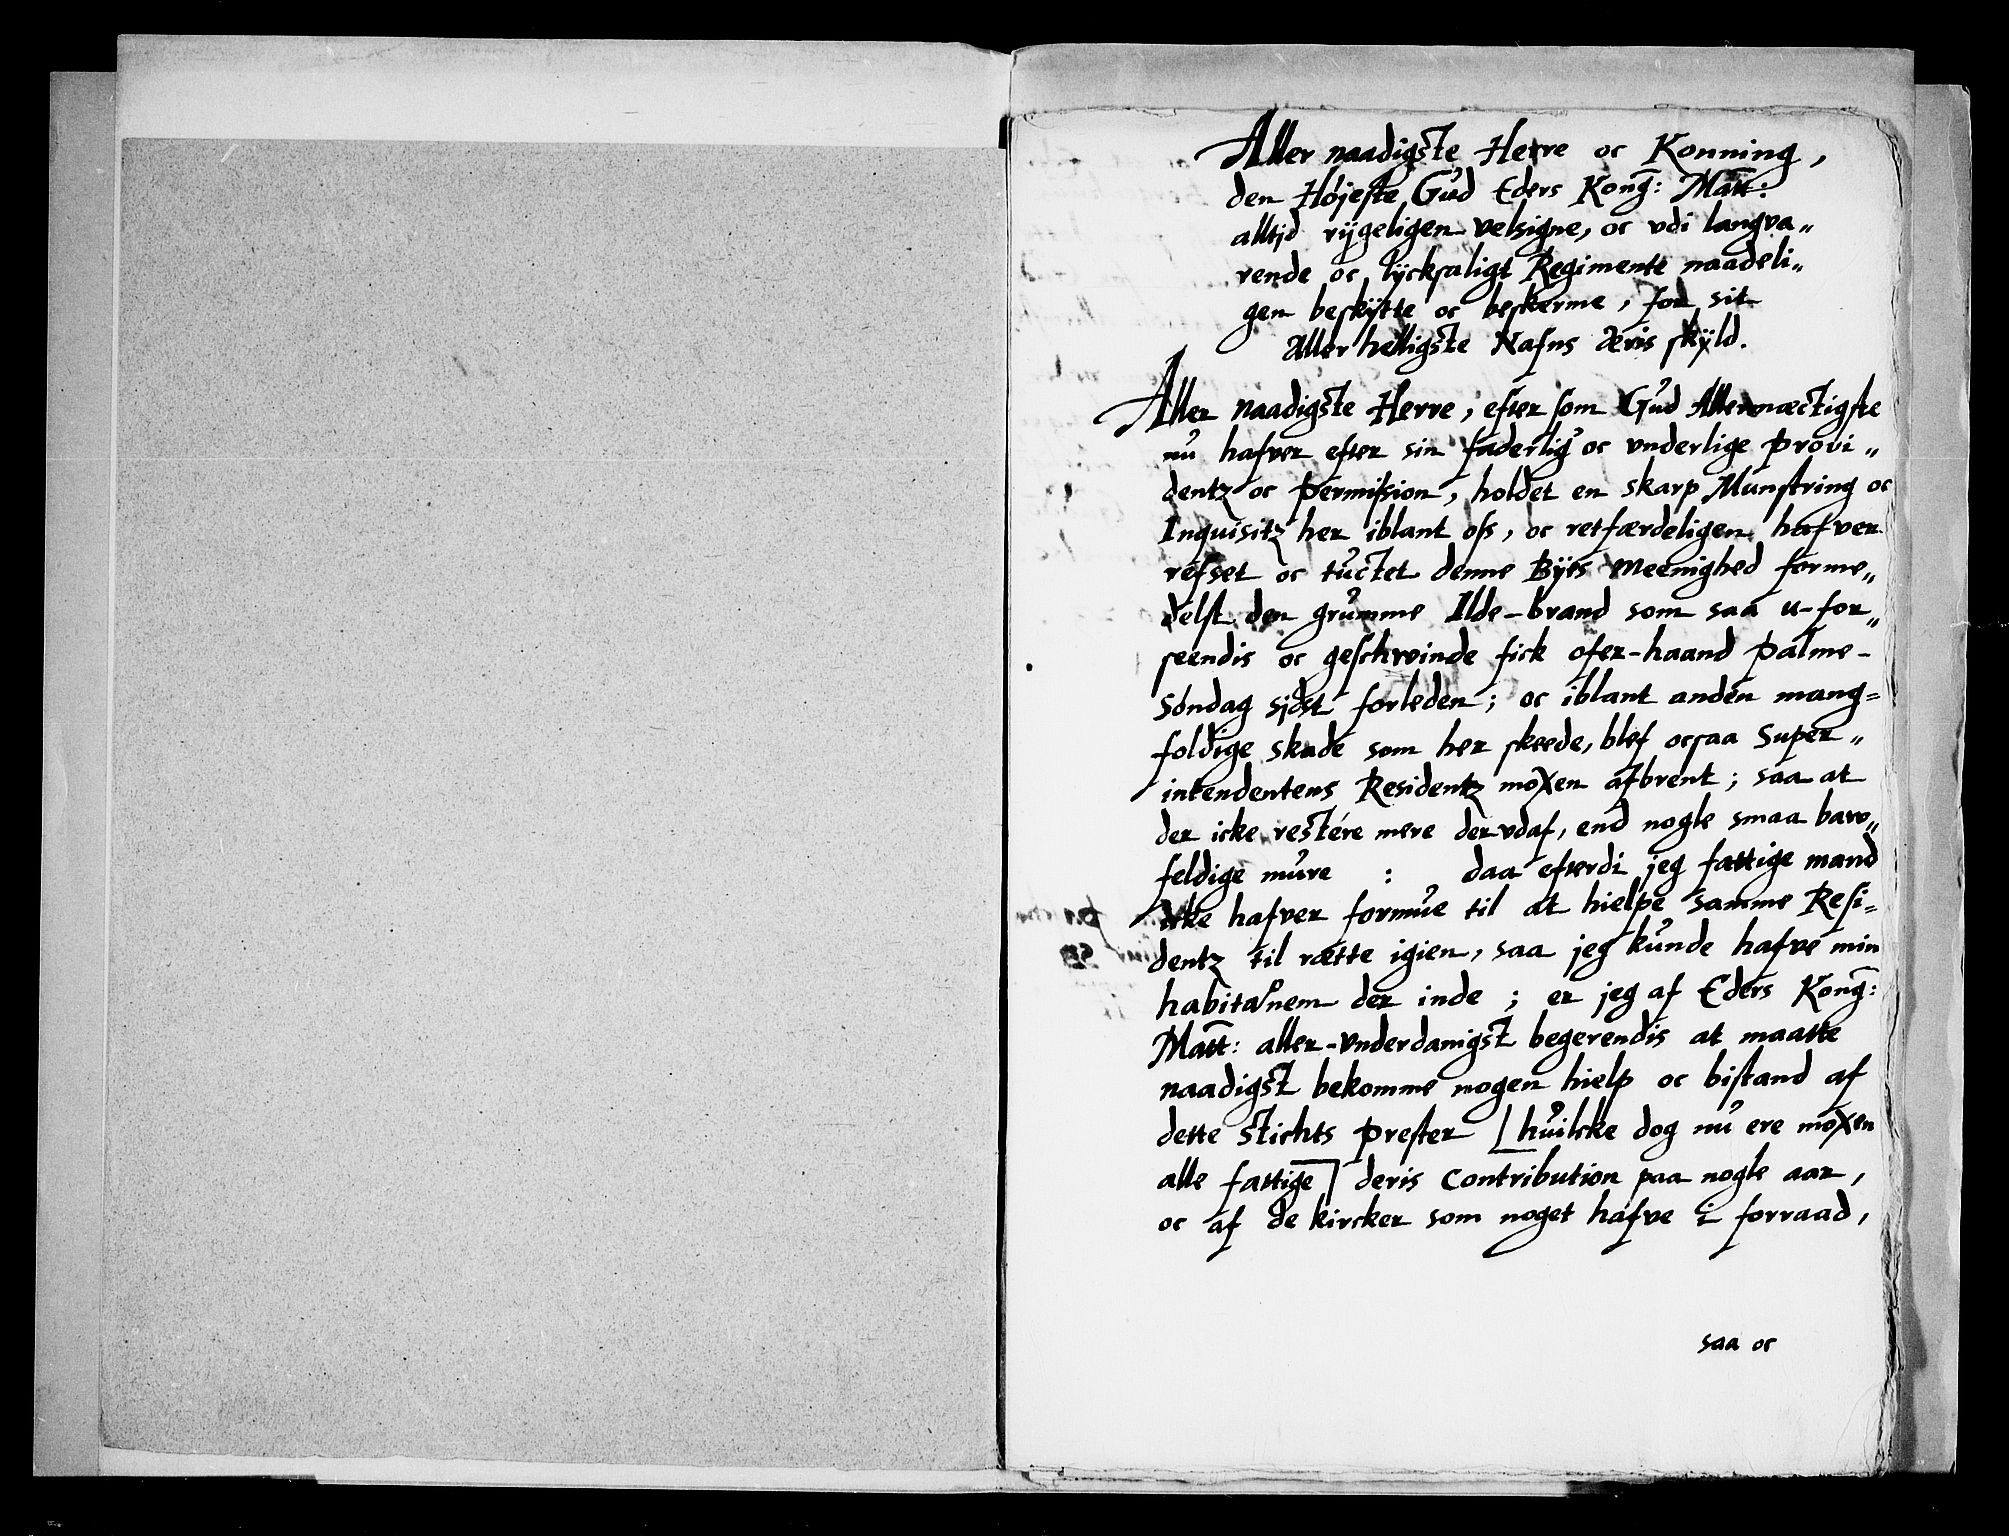 Aller naadigste Herre oc Konning,
den Höjeste Gud Eders Kong: Matt:
alltjd rijgeligen velsigne, oc vdi langva„
rende oc lÿcksaligt Regimente naadeli„
gen beskÿtte oc beskerme, for sit
Aller helligste Nafns Æris skÿld.
Aller naadigste Herre, efter som Gud Allermectigste
nu hafver efter sin faderlig oc vnderlige provi„
dentz oc permission, holdet en skarp Munstring oc
Inquisitz her iblant oss, oc retfærdeligen hafver
refset oc tuctet denne Bÿes Meenighed forme„
delst den grumme Ilde-brand som saa u-for„
seendis oc geschwinde fick ofer-haand Palme-
Söndag sjdst forleden; oc iblant anden mang=
foldige skade som her skeede, blef ocsaa Super„
intendentens Residentz moxen afbrent; saa at
der icke restére mere der vdaf, end nogle smaa baw„
feldige mure : daa efterdi jeg fattige mand
icke hafver formue til at hielpe samme Resi=
dentz til rætte igien, saa jeg kunde hafve min
habitaōnem der inde ; er jeg af Eders Kong:
Matt: aller-vnderdanigst begerendis at maatte
naadigst bekomme nogen hielp oc bistand af
dette Stichts Prester [huilcke dog nu ere moxen
alle fattige] deris Contribution paa nogle aar,
oc af de kircker som noget hafve i forraad,
saa oc